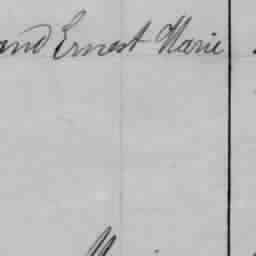 and Ernest Marie